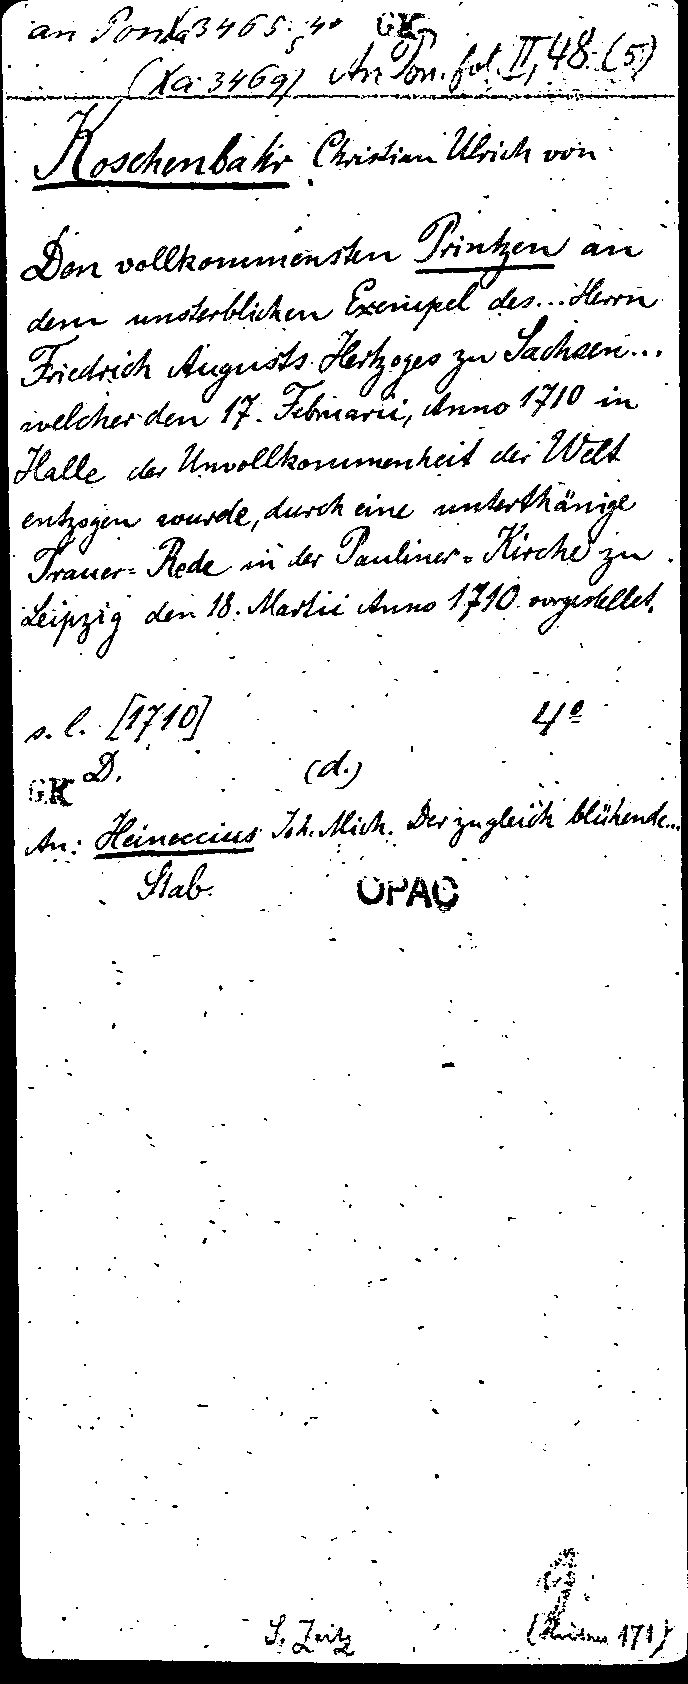 an Pon Xa 3465, 4° GK
(Xa 3469) An Pon. fol. II, 48 (5)
Koschenbahr Christian Ulrich von
Den vollkommensten Printzen an
dem unsterblichen Exempel des... Herrn
Friedrich Augusts Hertzoges zu Sachsen...
welcher den 17. Februarii, Anno 1710 in
Halle der Unvollkommenheit der Welt
entzogen wurde, durch eine unterthänige
Trauer-Rede in der Pauliner-Kirche zu
Leipzig den 18. Martii Anno 1710 vorgestellet.
s. l. [1710] 4°
D. (d.)
GK
An: Heineccius Joh. Mich. Der zugleich blühende...
Stab. OPAC
S. Zeitz 171)